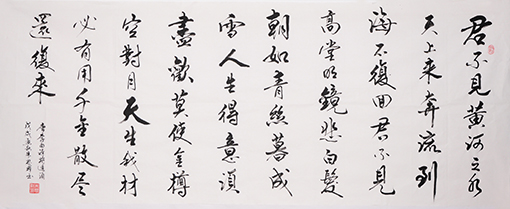 君不見黃河之水
天上來奔流到
海不復回君不見
高堂明鏡悲白髮
朝如青絲暮成
雪人生得意須
盡歡莫使金樽
空對月天生我材
必有用千金散尽
還復來